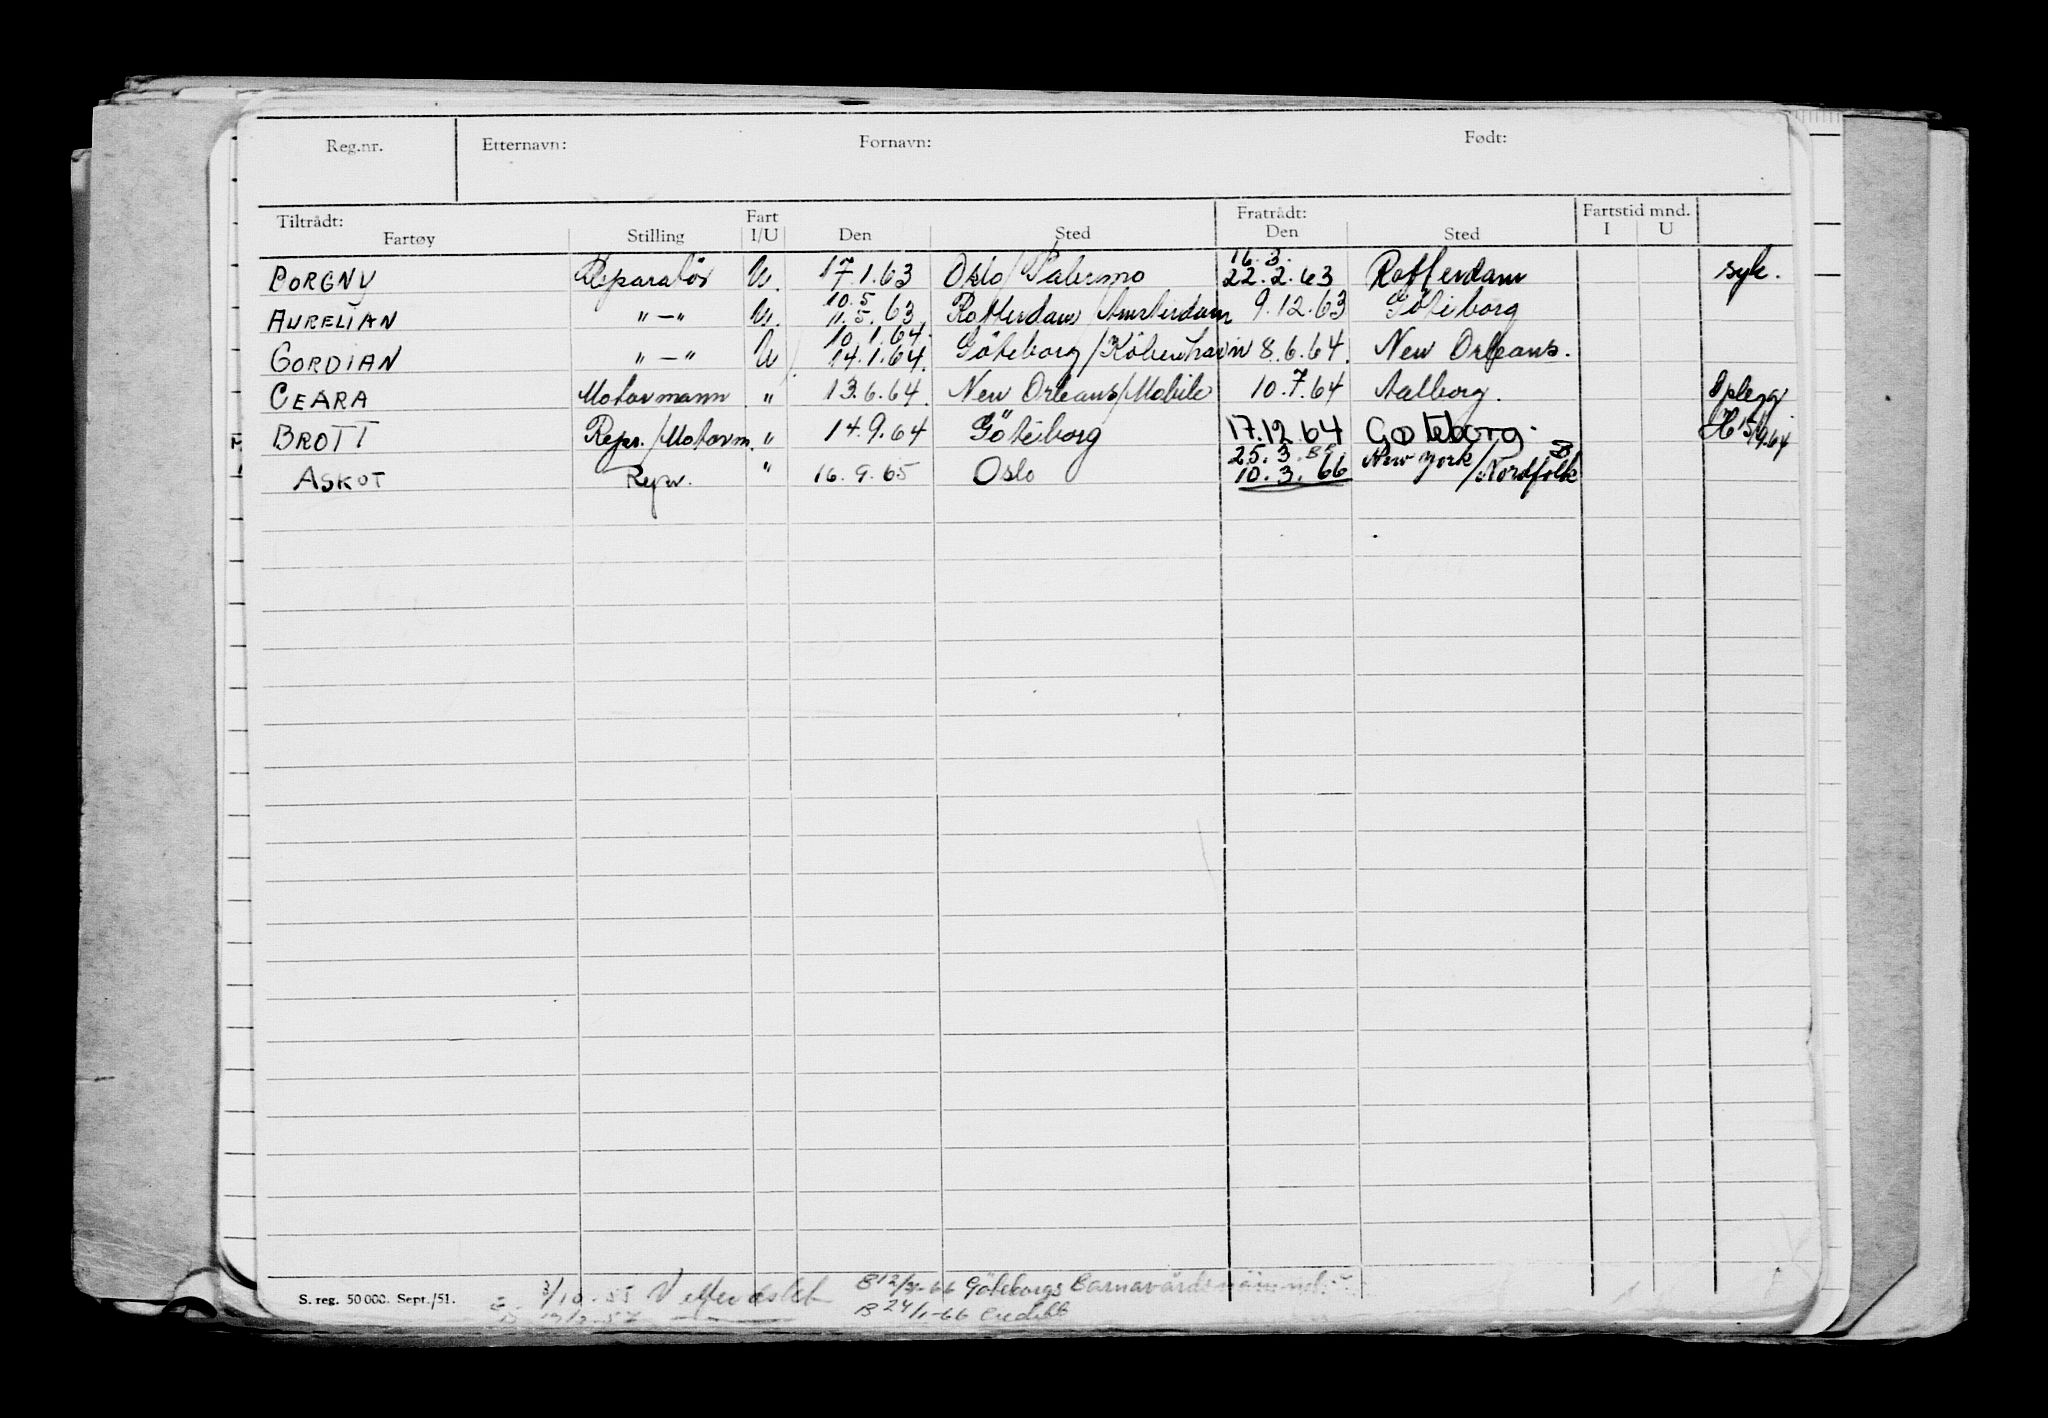 Reg.nr. Etternavn: Fornavn: Født:
Tiltrådt: Fart Fratrådt: Fartstid mnd.
Fartøy Stilling I/U Den Sted Den Sted I U
16.3.
PORGNY Reparatör U. 17.1.63 Oslo/Palermo 22.2.63 Rotterdam syk.
10.5
AURELIAN "—" U. 11.5.63 Rotterdam/Amsterdam 9.12.63 Göteborg
10.1.64.
GORDIAN "—" U 14.1.64. Göteborg/Köbenhavn 8.6.64. New Orleans.
CEARA Motormann " 13.6.64. New Orleans/Mobile 10.7.64 Aalborg. Oplegg
BROTT Repr./Motorm. " 14.9.64 Göteborg 17.12 64 Gøteborg. H 15/9.64
25.3. New York/
ASKOT Repr. " 16.9.65 Oslo 10.3.66 Nordfolk
S. reg. 50 000. Sept./51. 3/10-55 B 12/3-66 Göteborgs Barnavårdsnämnd
B 24/1-66